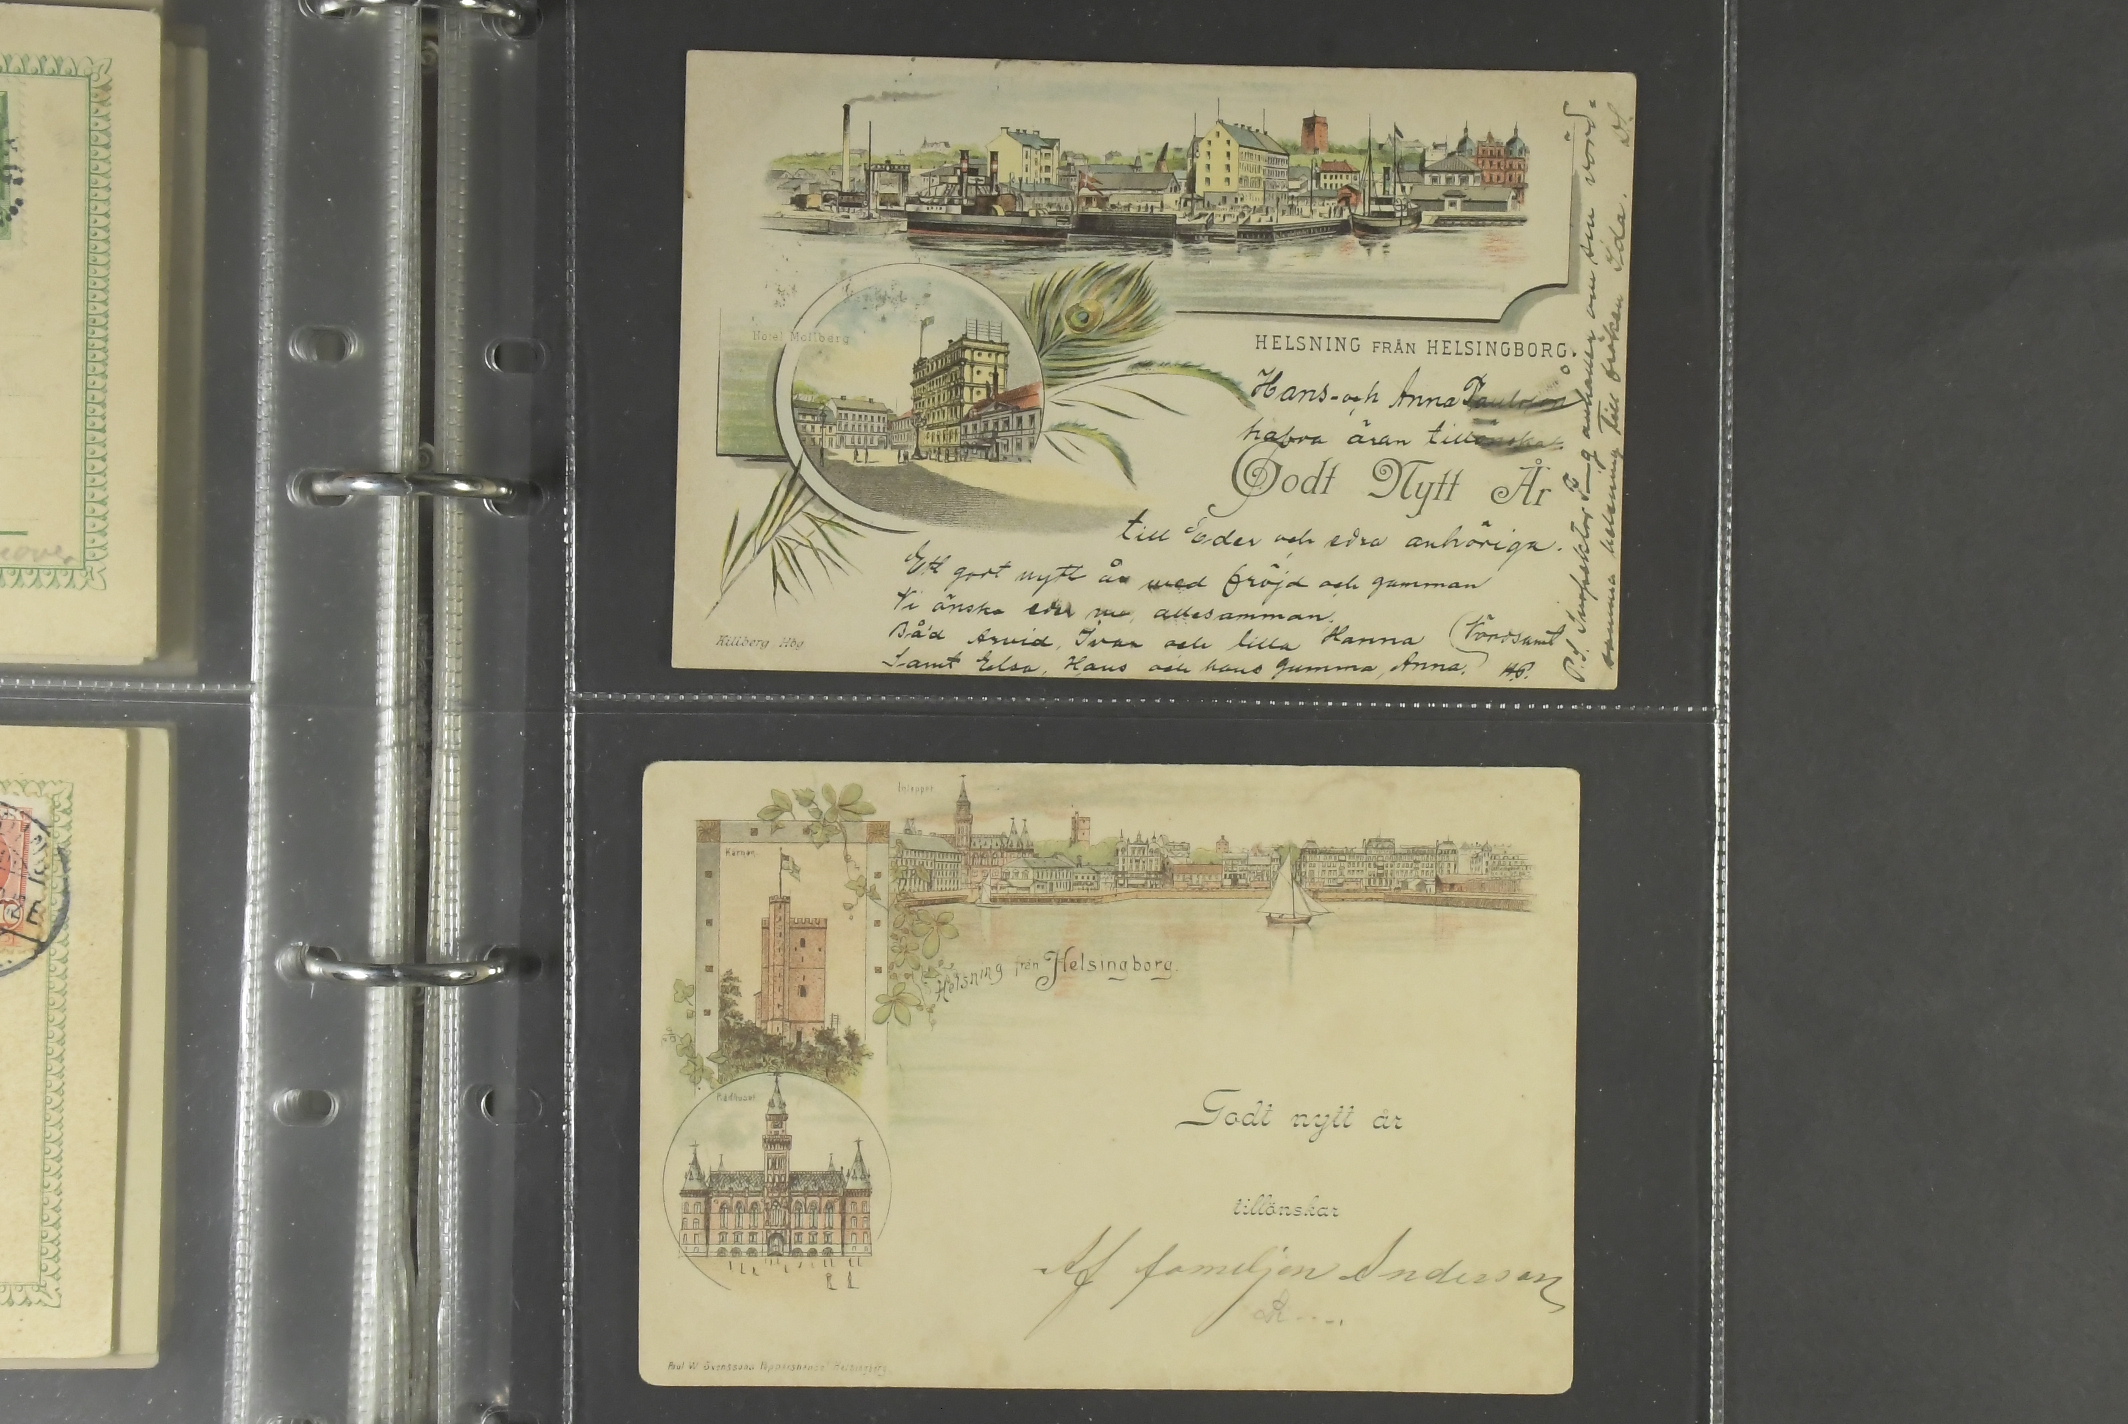 Hotel Mollberg
HELSNING FRÅN HELSINGBORG.
Hans och Anna Paulsson
hafva äran tillönska
Godt Nytt År
till Eder och edra anhöriga.
Ett gott nytt år med fröjd och gamman
Vi önska eder nu allesamman.
Båd Arvid, Ivar och lilla Hanna
Samt Elsa, Hans och hans gumma, Anna.
Vördsamt
H.P.
Killberg Hbg
P.S. Inspektor anhåller om sin vörd-
samma helsning till fröken Ida. D.S.
Inloppet
Kärnan
Helsning från Helsingborg.
Rådhuset
Godt nytt år
tillönskar
Af familjen Anderson
R....
Paul W. Svenssons Pappershandel Helsingborg